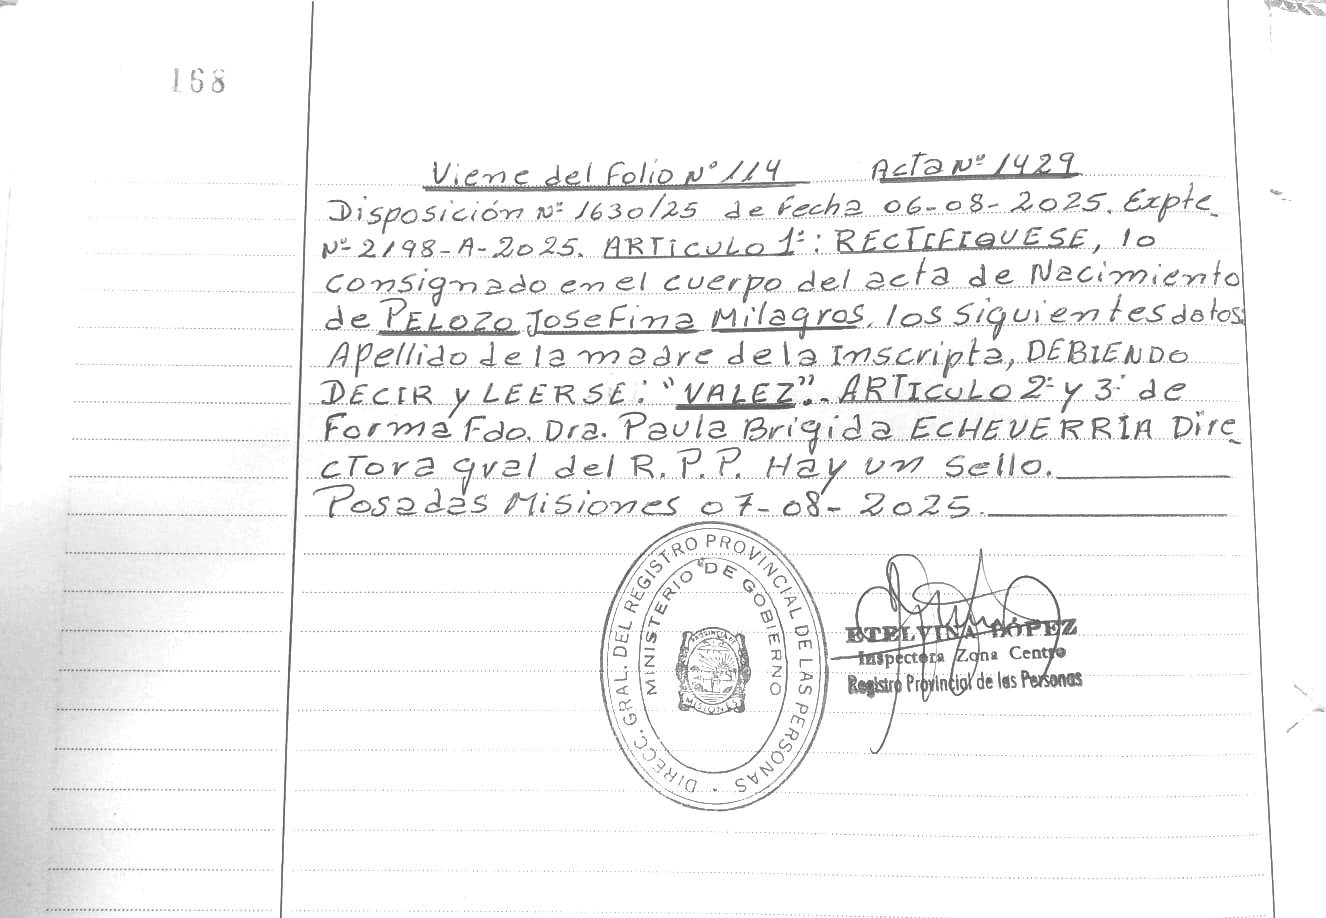 168
Viene del Folio Nº 114 Acta Nº 1429
Disposición Nº 1630/25 de Fecha 06-08-2025. Expte.
Nº 2198-A-2025. ARTICULO 1º: RECTIFIQUESE, lo
consignado en el cuerpo del acta de Nacimiento
de PELOZO Josefina Milagros, los siguientes datos:
Apellido de la madre de la Inscripta, DEBIENDO
DECIR y LEERSE: "VALEZ". ARTICULO 2º y 3º de
Forma Fdo. Dra. Paula Brigida ECHEVERRIA Dire_
ctora gral del R.P.P. Hay un Sello.
Posadas Misiones 07-08-2025.
DIRECC. GRAL. DEL REGISTRO PROVINCIAL DE LAS PERSONAS
MINISTERIO DE GOBIERNO
MISIONES
ETELVINA LÓPEZ
Inspectora Zona Centro
Registro Provincial de las Personas